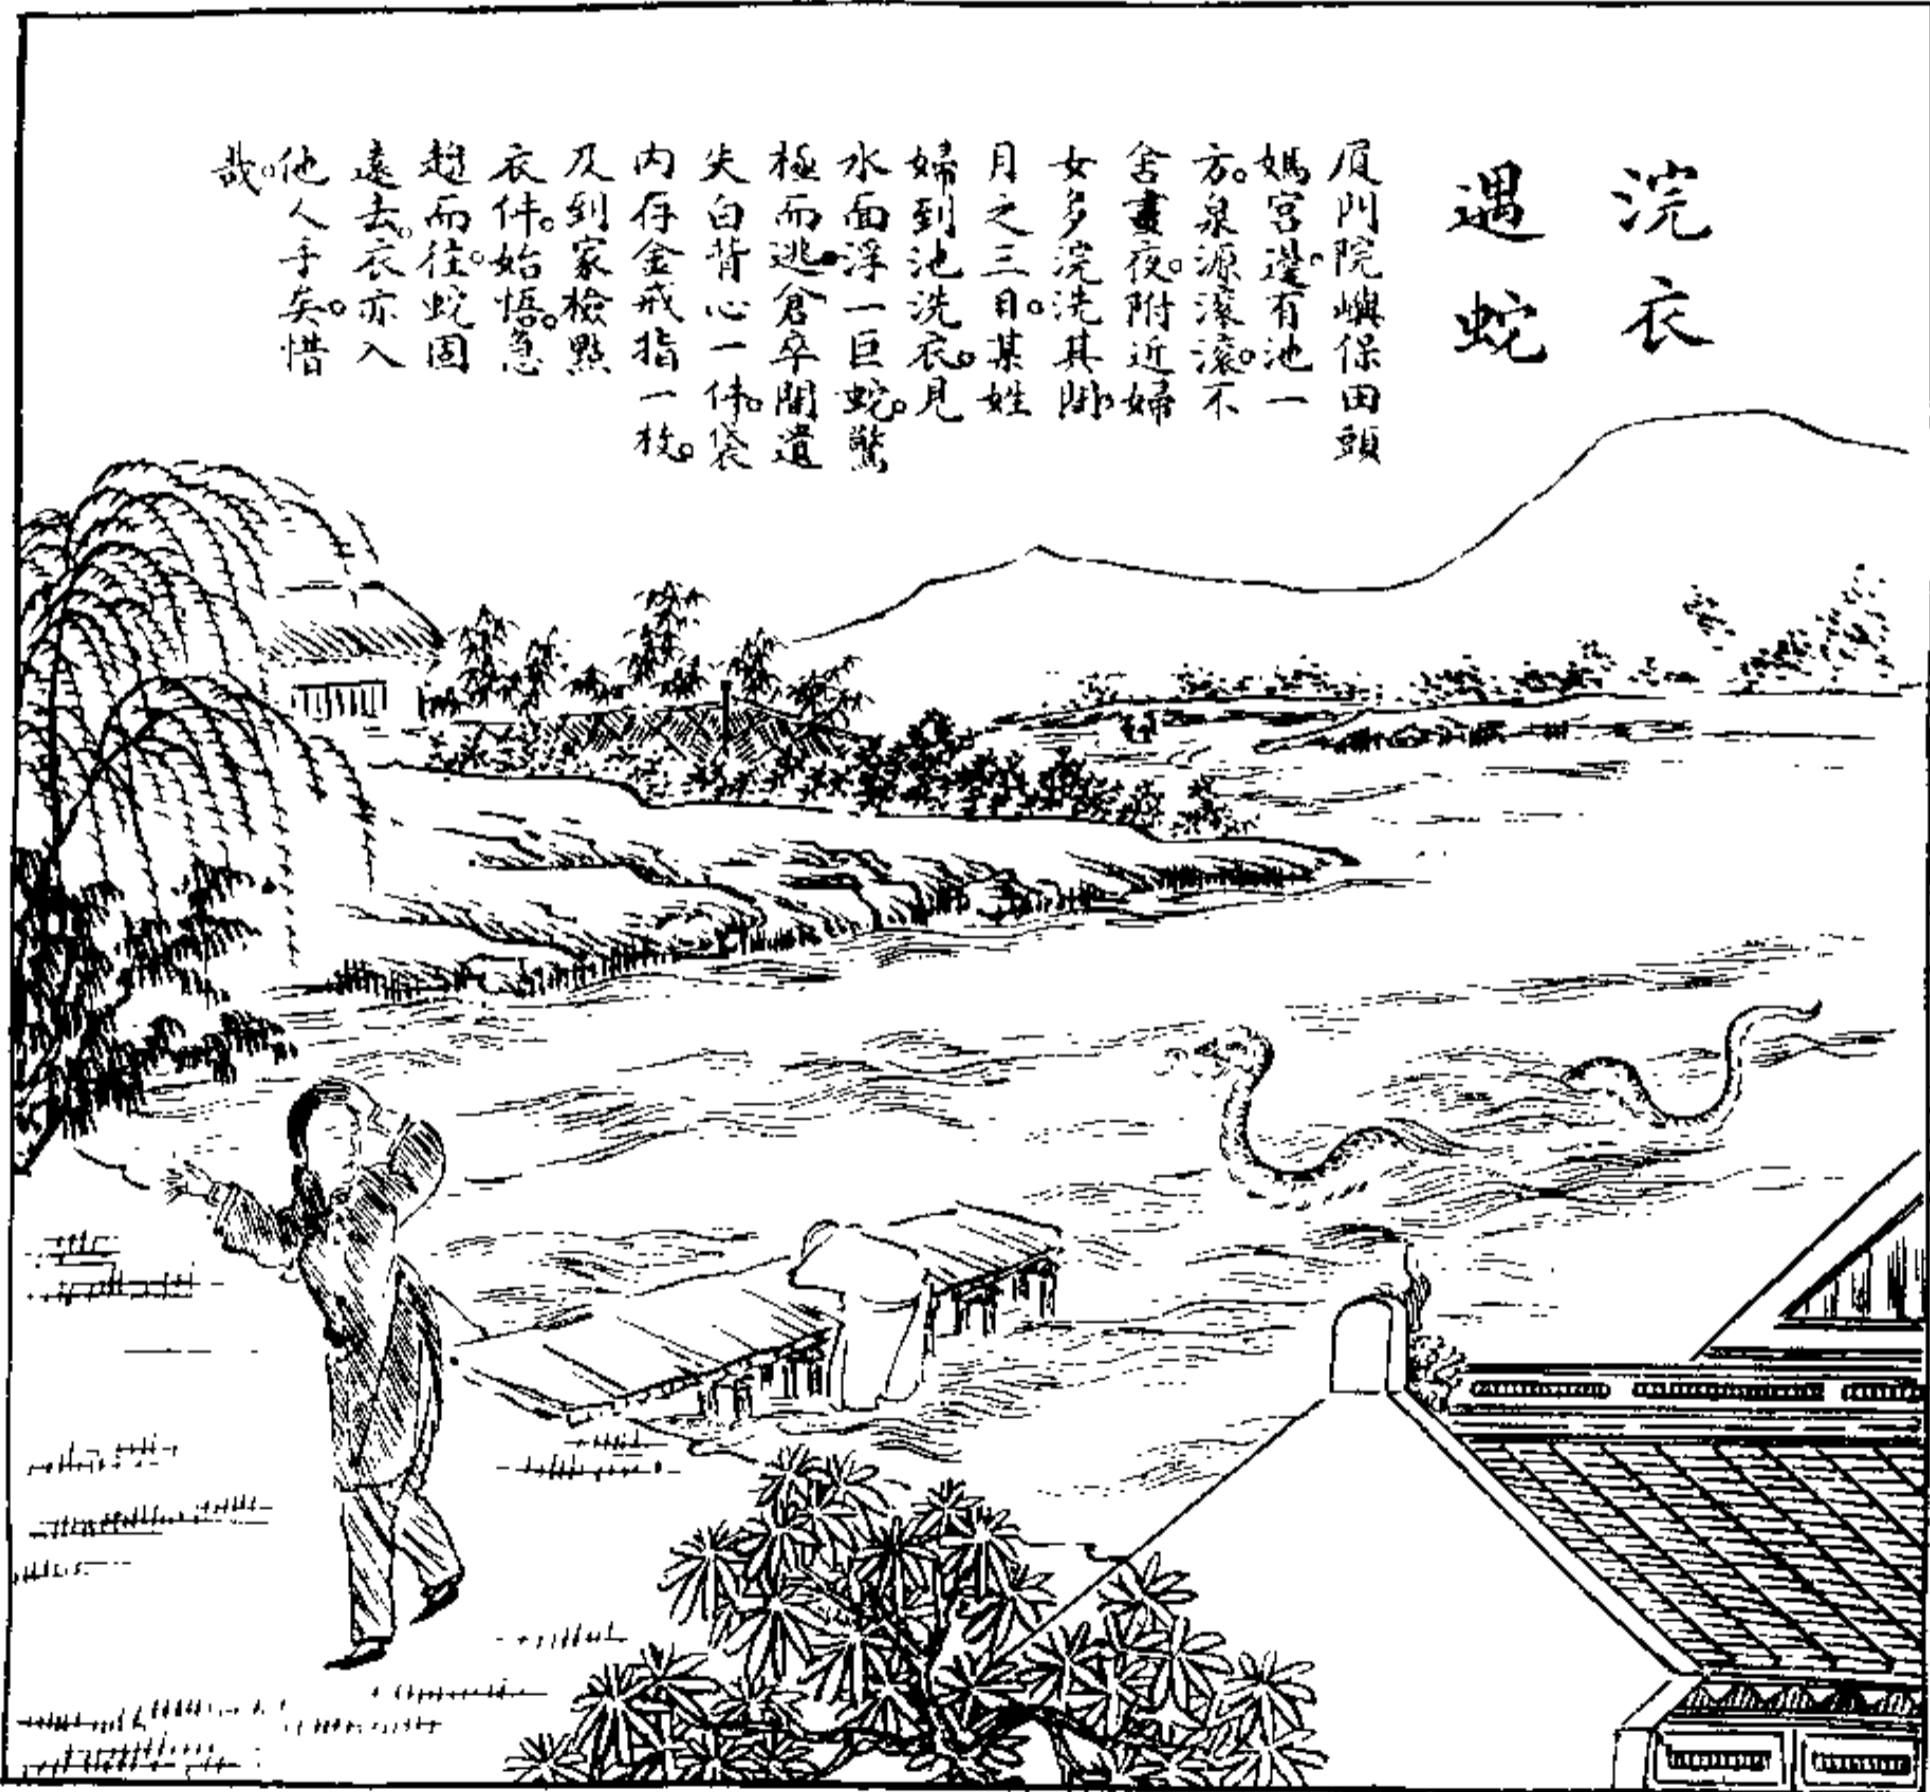 浣衣
遇蛇
厦門院嶼保田頭
媽宮邊。有池一
方。泉源滾滾。不
舍晝夜。附近婦
女多浣洗其間。
月之三日。某姓
婦到池洗衣。見
水面浮一巨蛇。驚
極而逃。倉卒間遺
失白背心一件。袋
内存金戒指一枚。
及到家檢點
衣件。始悟。急
趨而往。蛇固
遠去。衣亦入
他人手矣。惜
哉。